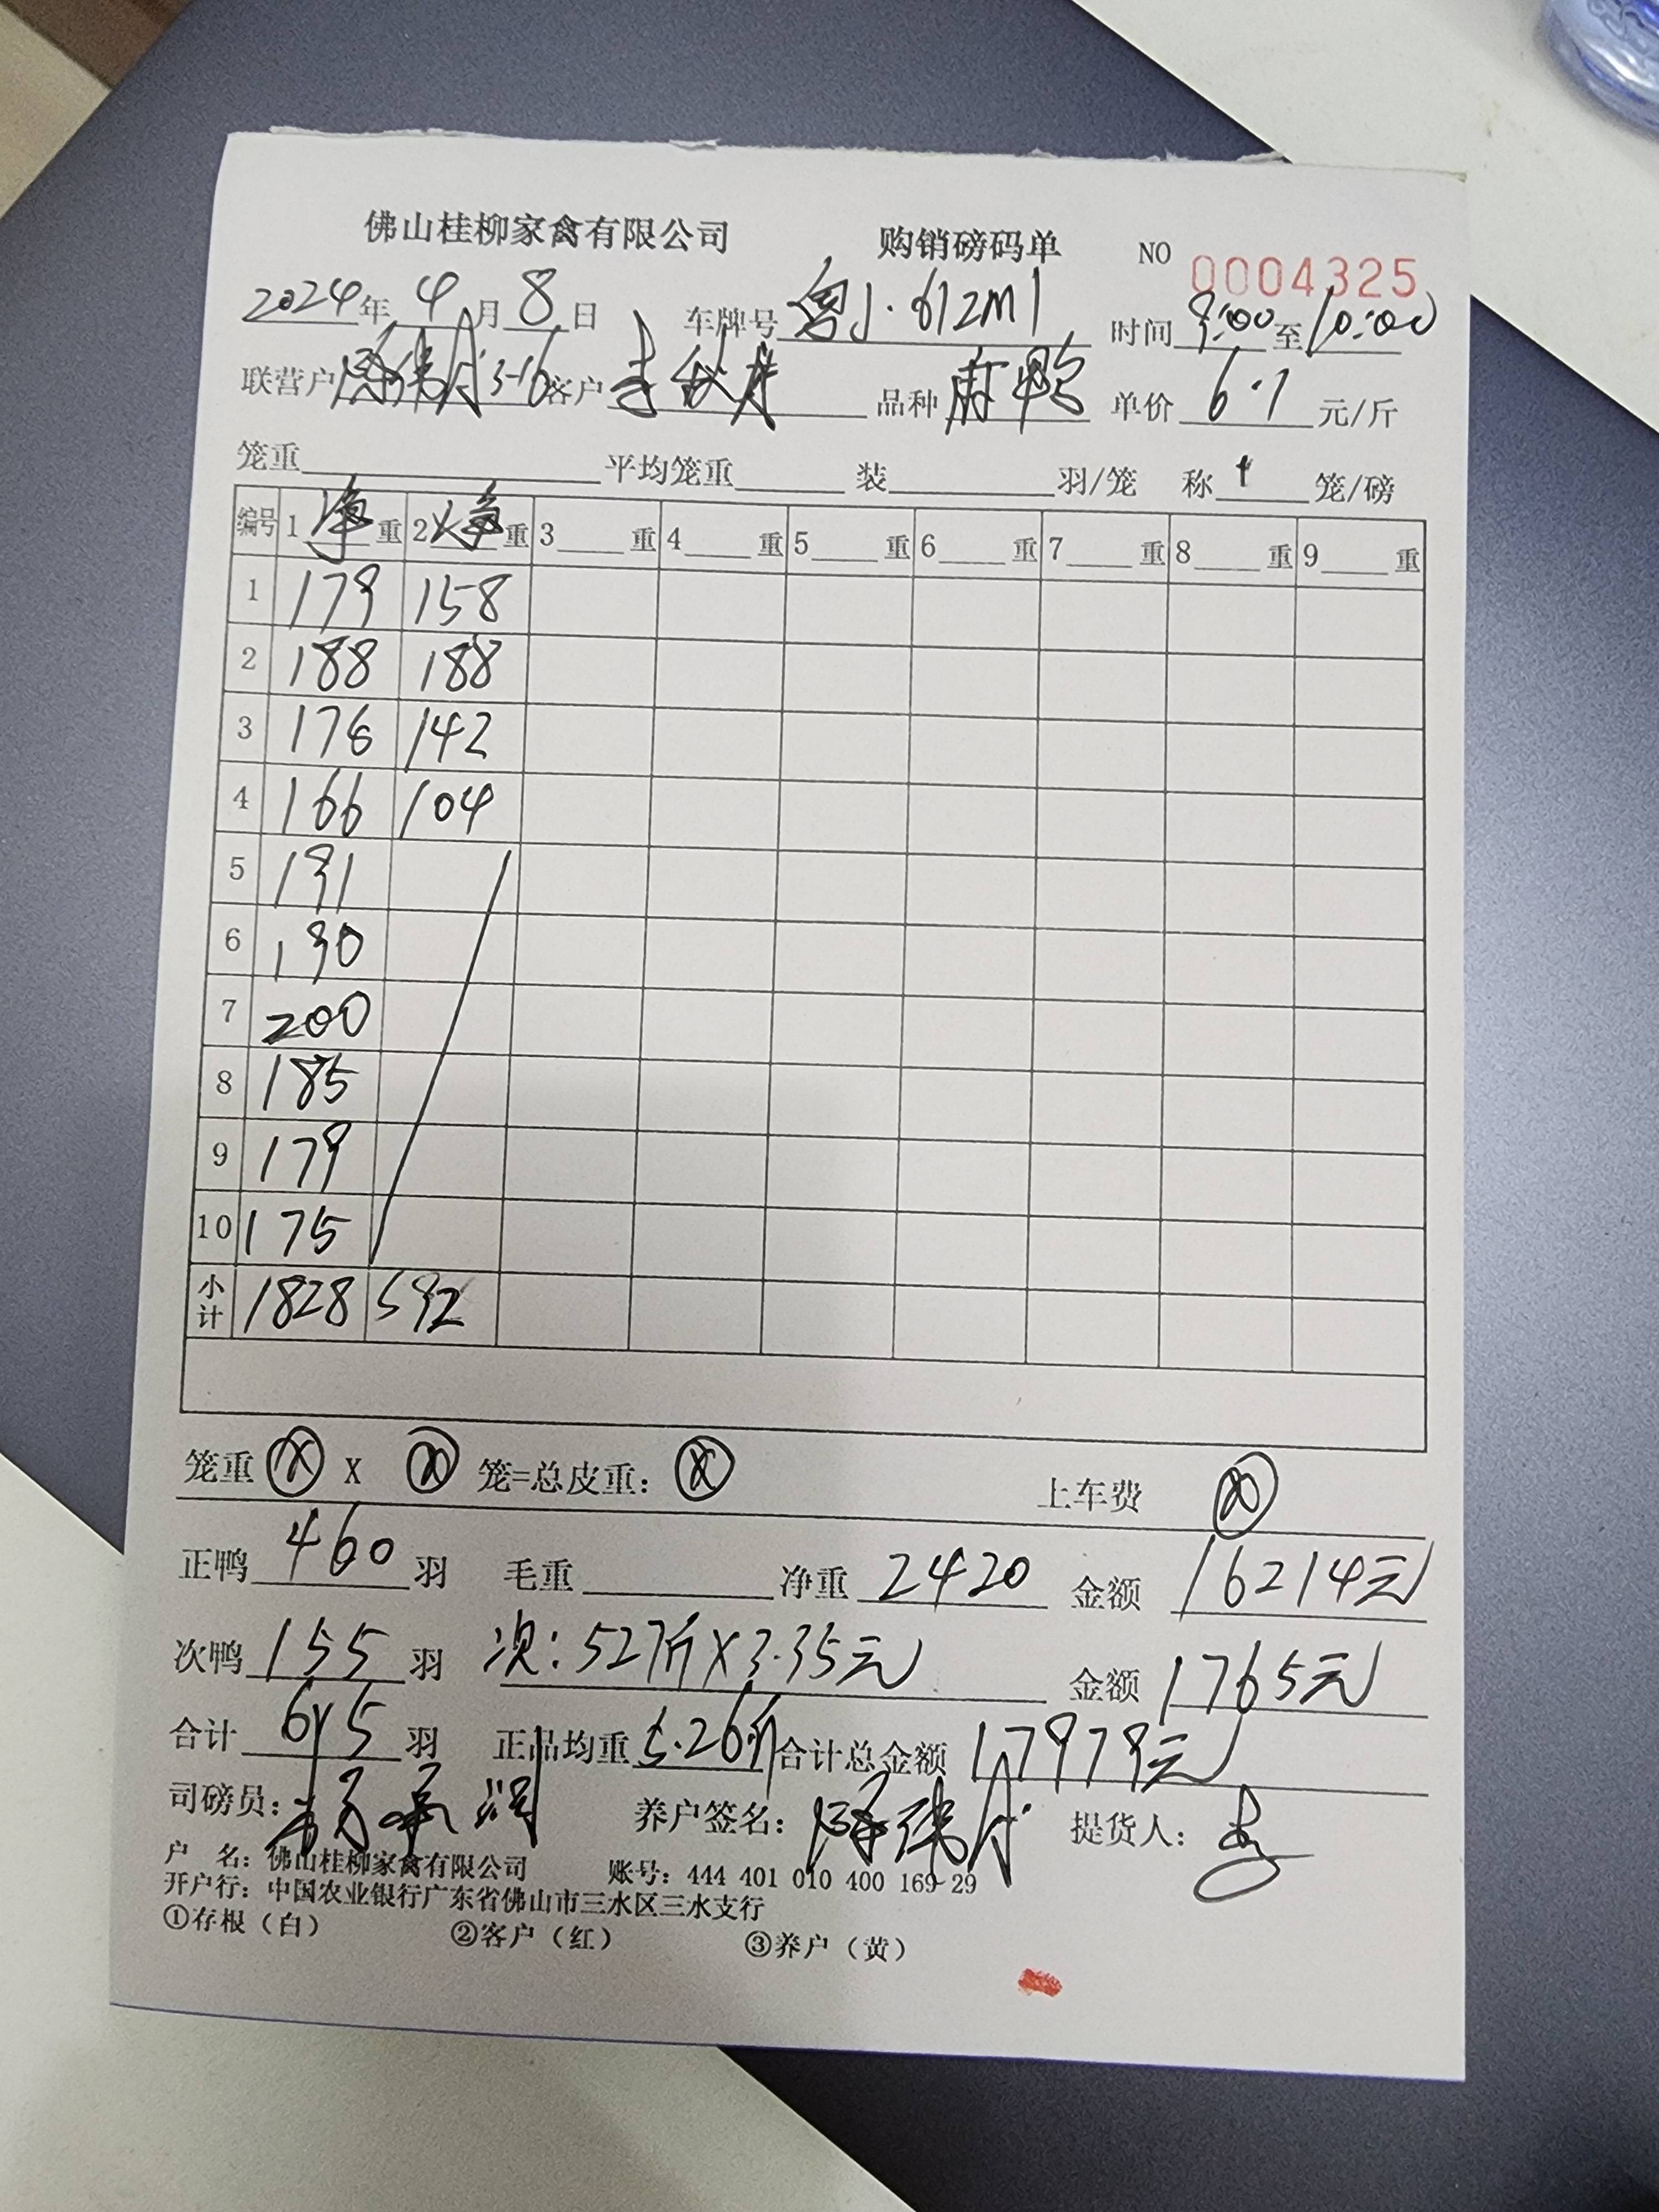 佛山桂柳家禽有限公司 购销磅码单 NO 0004325
2024年4月8日 车牌号 粤J·612M1 时间 9:00 至 10:00
联营户 3-16 客户 品种 麻鸭 单价 6.7 元/斤
笼重 平均笼重 装 羽/笼 称 1 笼/磅
编号 1 净 重 2 净 重 3 重 4 重 5 重 6 重 7 重 8 重 9 重
1 179 158
2 188 188
3 176 142
4 166 104
5 191
6 190
7 200
8 185
9 179
10 175
小计 1828 592
笼重 X 笼=总皮重: 上车费
正鸭 460 羽 毛重 净重 2420 金额 16214元
次鸭 155 羽 次: 527斤X3.35元 金额 1765元
合计 615 羽 正品均重 5.26斤 合计总金额 17979元
司磅员: 养户签名: 提货人:
户 名: 佛山桂柳家禽有限公司 账号: 444 401 010 400 169 29
开户行: 中国农业银行广东省佛山市三水区三水支行
①存根(白) ②客户(红) ③养户(黄)